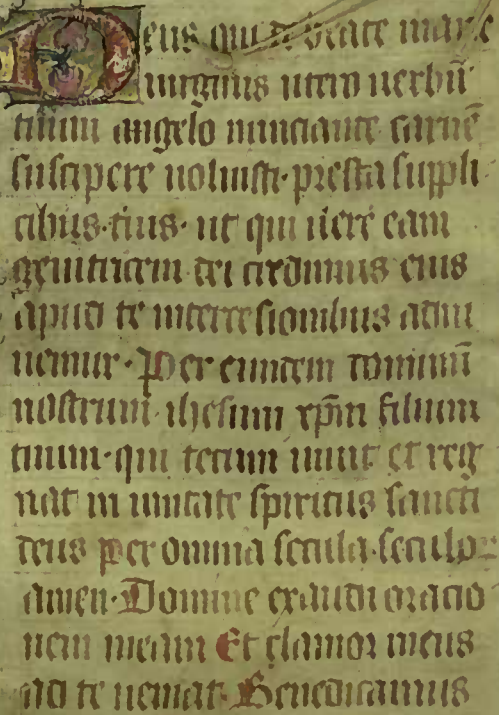 Deus qui de beate marie
uirginis utero uerbū
tuum angelo nunciante carnē
suscipere uoluisti · presta suppli
cibus · tuis · ut qui uere eam
genitricem dei credimus eius
apud te intercesionibus adiu
uemur · Per eundem dominū
nostrum · ihesum xp̄m filium
tuum · qui tecum uiuit et reg
nat in unitate spiritus sancti
deus per omnia secula · seculo
amen · Domine exaudi oracio
nem meam Et clamor meus
ad te ueniat · Benedicamus